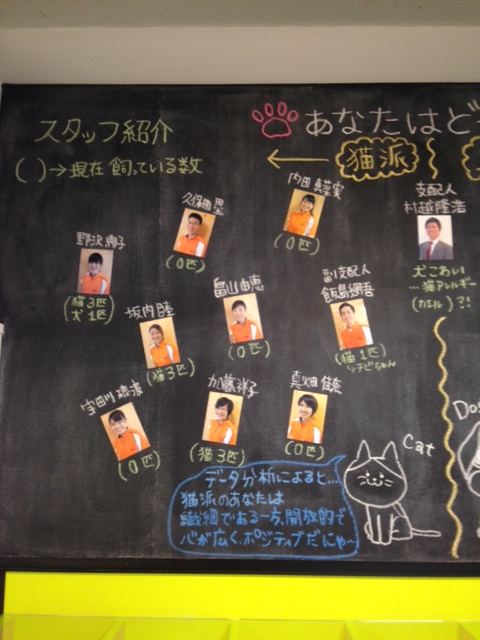 スタッフ紹介
( )→現在 飼っている数
あなたはど
← 猫派
久保田
(0匹)
内田 真菜実
(0匹)
支配人
村越隆浩
犬こわい
…猫アレルギー
(カエル)?!
野沢 絢子
(猫3匹
犬1匹)
坂内 陸
(猫3匹)
畠山由恵
(0匹)
副支配人
飯島
(猫1匹)
↳チビちゃん
宇田川
(0匹)
加藤祥子
(猫3匹)
真畑 佳菜
(0匹)
Cat
Do
データ分析によると…
猫派のあなたは
繊細である一方、開放的で
心が広く、ポジティブだにゃ〜